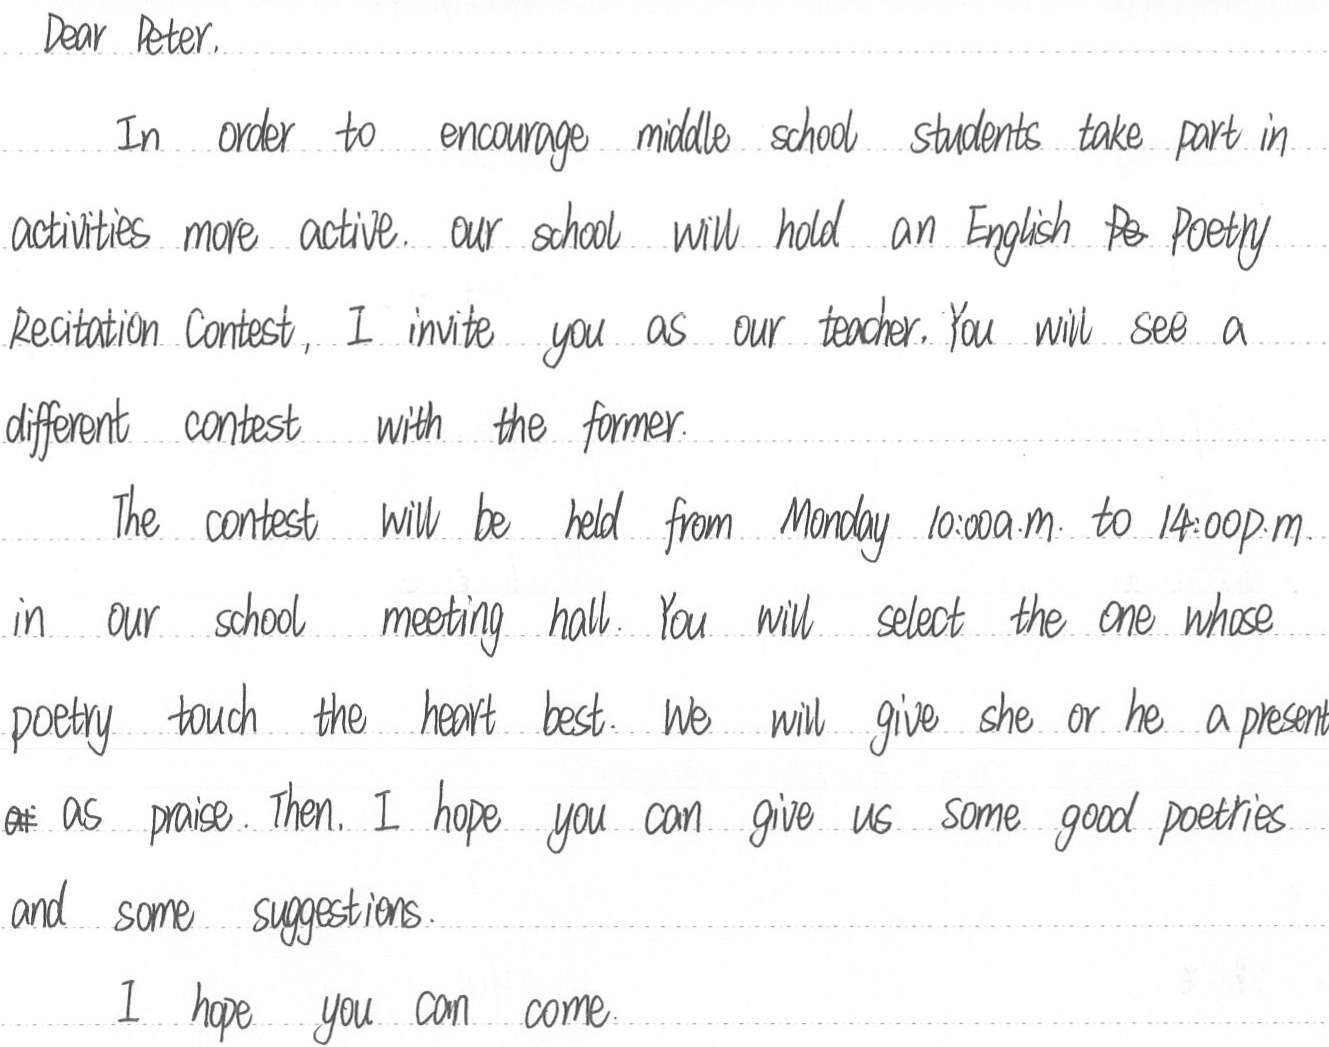 Dear Peter.
In order to encourage middle school students take part in
activities more active. our school will hold an English Poetry
Recitation Contest, I invite you as our teacher. You will see a
different contest with the former.
The contest will be held from Monday 10:00a.m. to 14:00p.m.
in our school meeting hall. You will select the one whose
poetry touch the heart best. We will give she or he a present
as praise. Then. I hope you can give us some good poetries
and some suggestions.
I hope you can come.